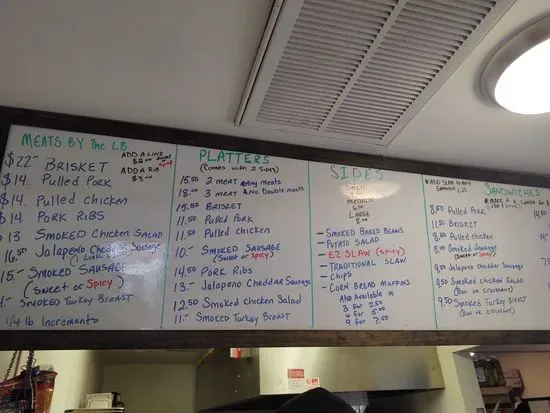 MEATS BY The LB.
ADD A LINK
$2.00
Spicy
ADD A RIB
$3.00
$22- BRISKET
$14. Pulled Pork
$14. Pulled chicken
$14 PORK RIBS
$13 SMOKED CHICKEN SALAD
16.50 Jalapeno Cheddar Sausage
15.- SMOKED SAUSAGE
(SWEET or SPICY)
SMOKED Turkey BREAST
1/4 lb Increments
PLATTERS
(Comes with 2 SIDES)
15.50 2 MEAT Any meats
18.00 3 MEAT No Double meats
15.50 BRISKET
11.50 Pulled Pork
11.50 Pulled chicken
10.- SMOKED SAUSAGE
(Sweet or SPICY)
14.50 PORK Ribs
13.- Jalapeno Cheddar Sausage
12.50 Smoked chicken Salad
11.- SMOKED Turkey BREAST
SIDES
Small
MEDIUM
6.00
LARGE
8.00
- SMOKED BAKED BEANS
- POTATO SALAD
- EZ SLAW (SPICY)
- TRADITIONAL SLAW
- Chips
- CORN BREAD MUFFINS
Also Available in
3 for 2.50
6 for 5.00
9 for 7.50
ADD SLAW to ANY
SANDWICH 1.25
SANDWICHES
8.50 Pulled Pork
11.50 BRISKET
8.50 Pulled chicken
8.00 Smoked Sausage
(Sweet or SPICY)
9.50 Jalapeno Cheddar Sausage
9.50 Smoked chicken Salad
(Bun or CROISSANT)
9.50 Smoked Turkey Breast
(Bun or CROISSANT)